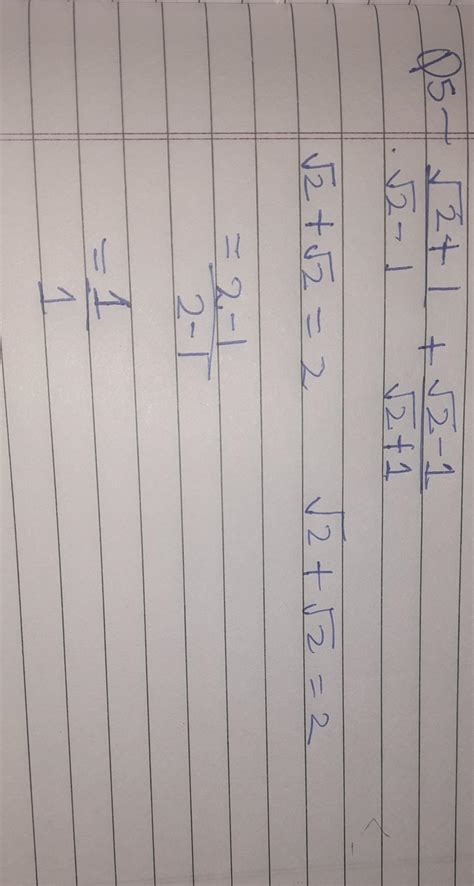 Q5~ √2+1 / √2-1 + √2-1 / √2+1
√2+√2=2 √2+√2=2
= 2-1 / 2-1
= 1 / 1